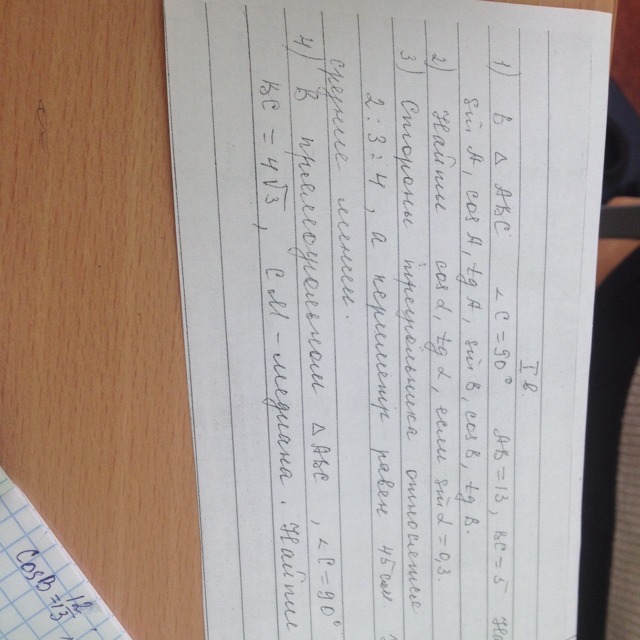 I в.
1) В △ ABC ∠C=90° AB=13, BC=5
sin A, cos A, tg A, sin B, cos B, tg B.
2) Найти cos α, tg α, если sin α = 0,3.
3) Стороны треугольника относятся
2:3:4, а периметр равен 45 см.
средние линии.
4) В прямоугольном △ABC, ∠C=90°
BC = 4√3, CM - медиана. Найти
cos B = 12/13